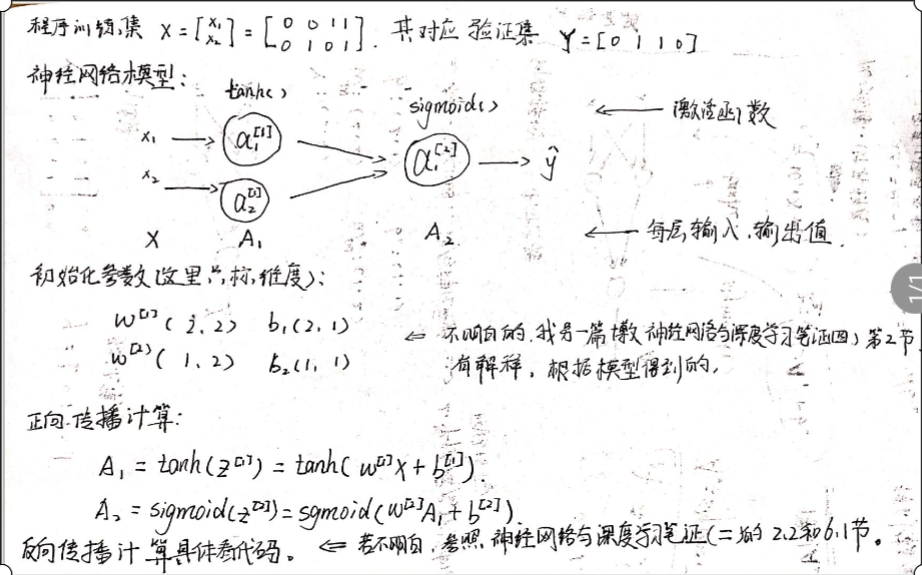 程序训练集 X = [x₁ x₂] = [0 0 1 1 0 1 0 1]. 其对应验证集 Y = [0 1 1 0]
神经网络模型:
tanh()
sigmoid()
← 激活函数
x₁ → a₁^[1]
x₂ → a₂^[1]
a₁^[2] → ŷ
X A₁ A₂ ← 每层输入、输出值.
初始化参数(这里只标维度):
w^[1] (2, 2) b₁(2, 1)
w^[2] ( 1, 2) b₂(1, 1)
⇐ 不明白的,我另一篇博文 神经网络与深度学习笔记(四) 第2节
有解释,根据模型得到的,
正向传播计算:
A₁ = tanh(z^[1]) = tanh( w^[1]x + b^[1]).
A₂ = sigmoid(z^[2]) = sgmoid(w^[2]A₁ + b^[2])
反向传播计算具体看代码。 ⇐ 若不明白,参照 神经网络与深度学习笔记(二)的 2.2和6.1节。
1/1